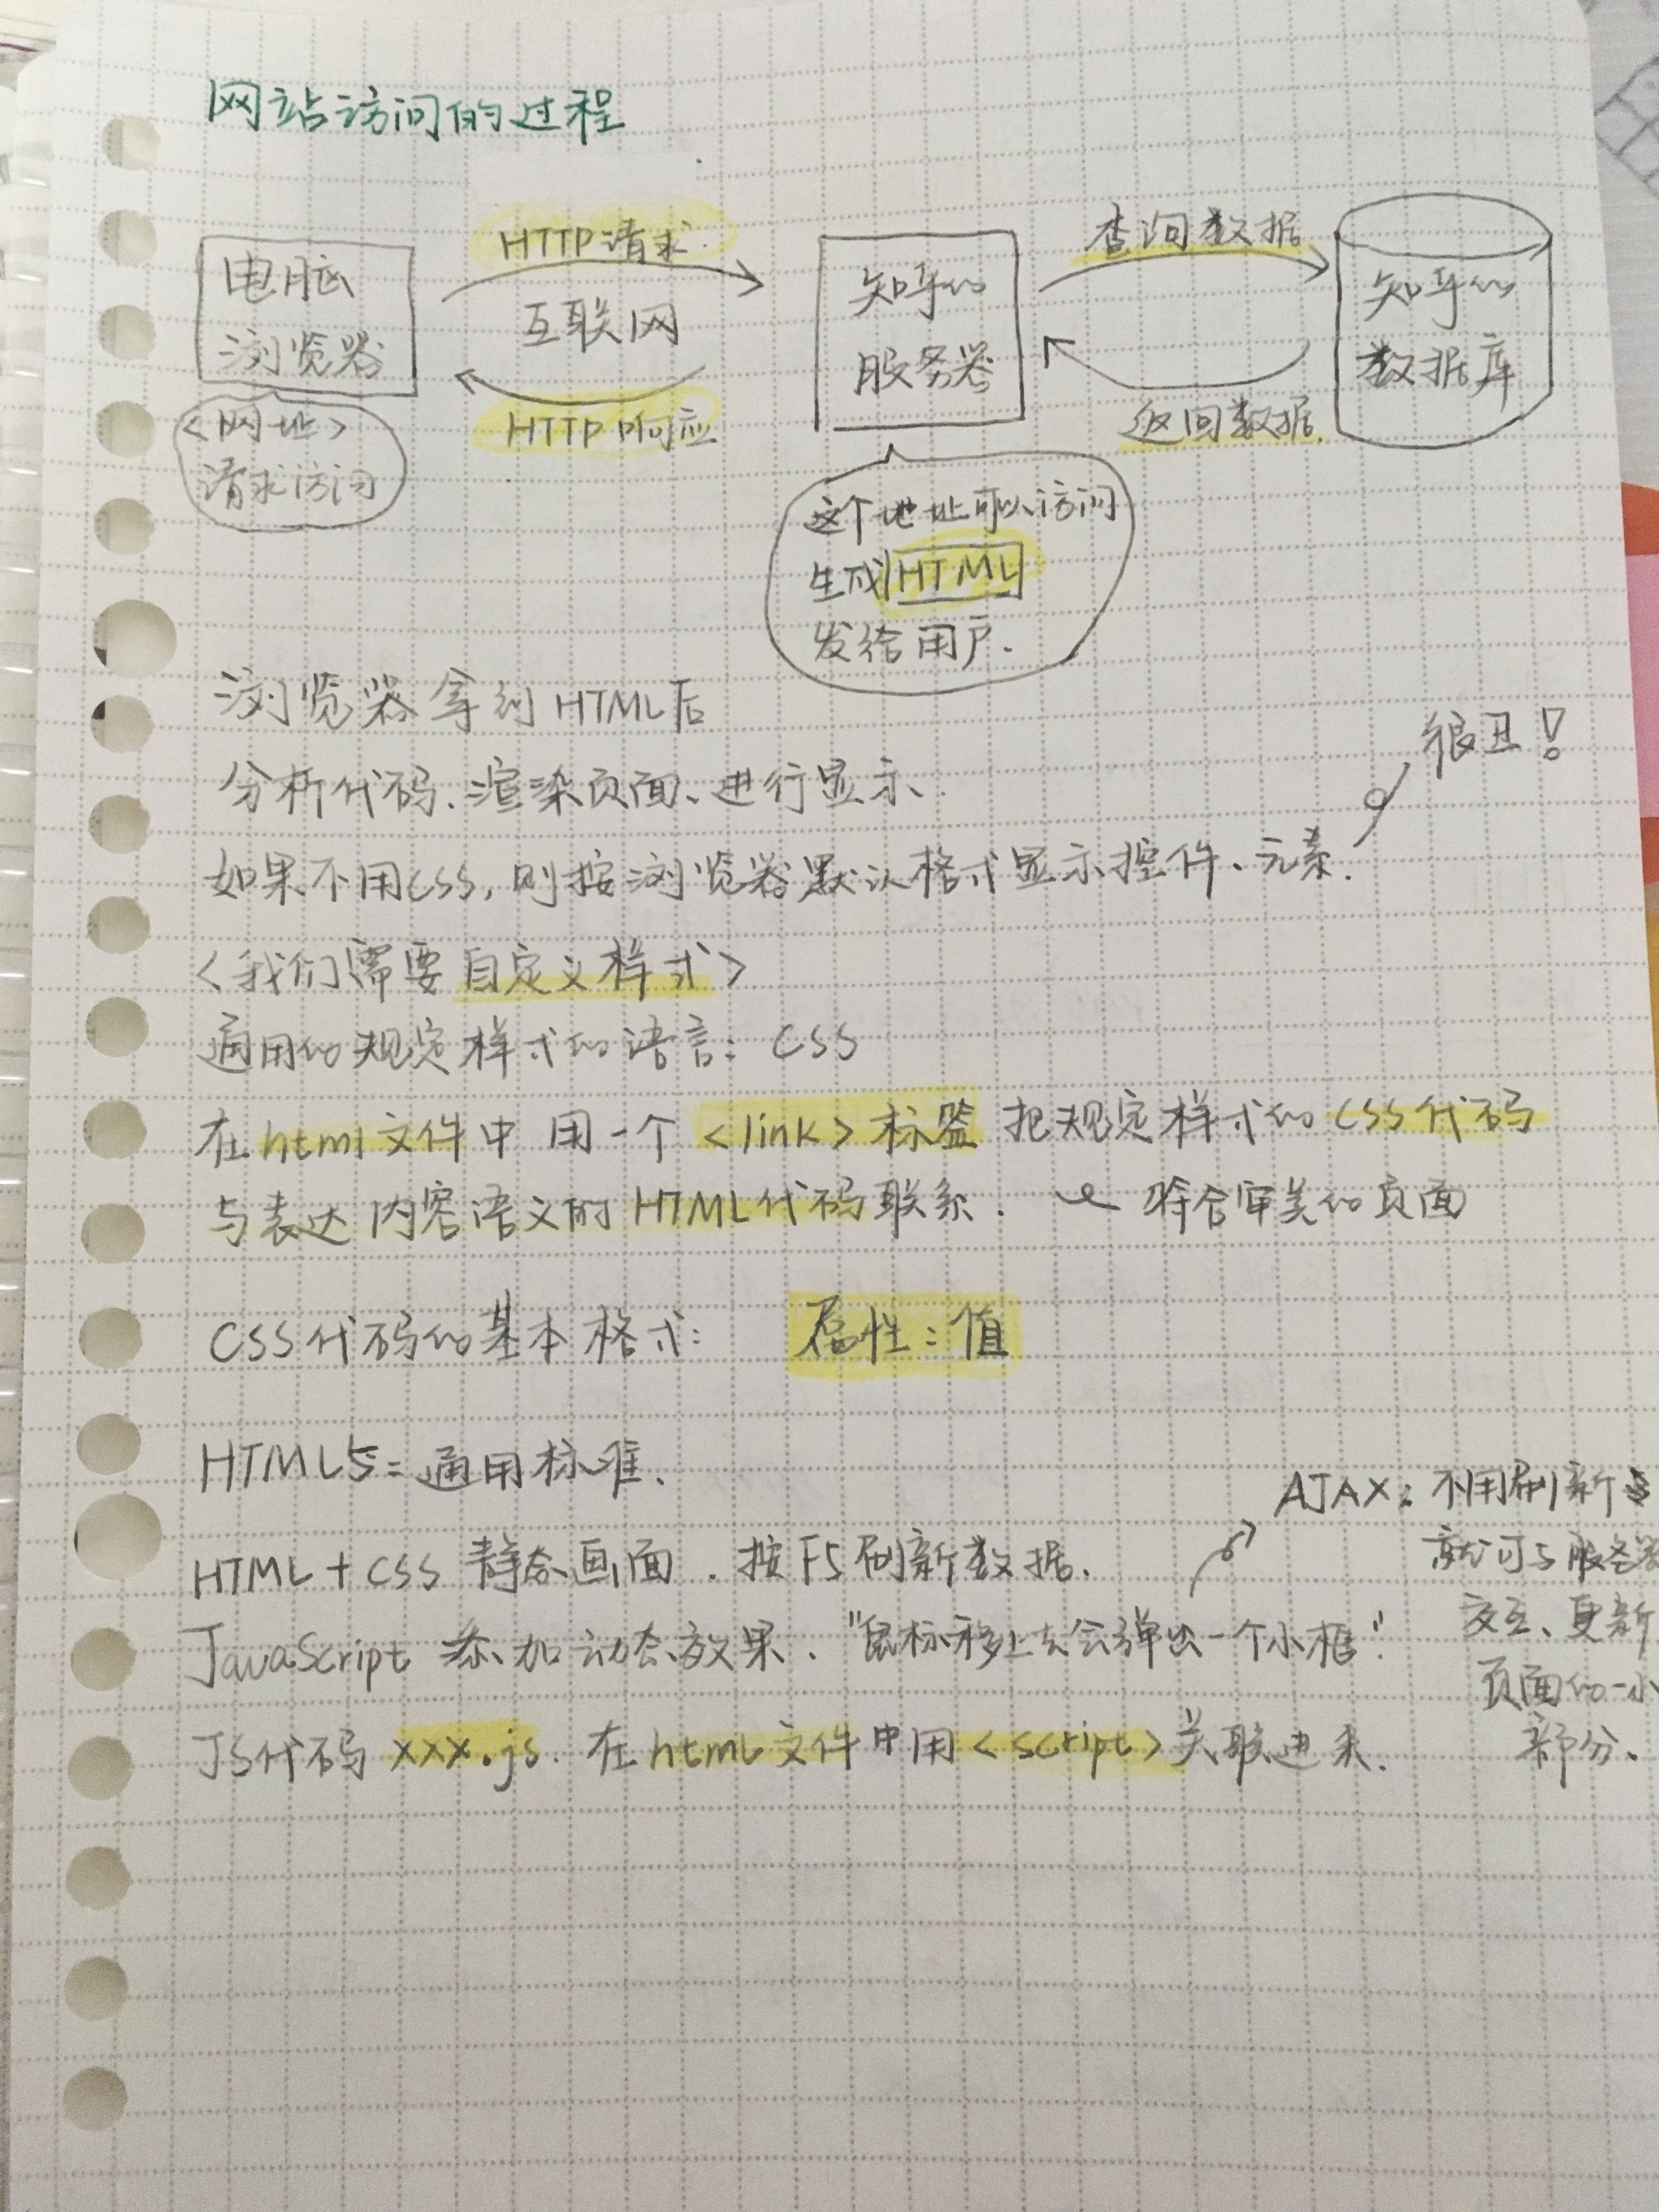 网站访问的过程
电脑
浏览器
<网址>
请求访问
HTTP请求
互联网
HTTP响应
知乎的
服务器
这个地址可以访问
生成HTML
发给用户.
查询数据
返回数据.
知乎的
数据库
浏览器拿到HTML后
分析代码、渲染页面、进行显示.
很丑!
如果不用CSS,则按浏览器默认格式显示控件、元素.
<我们需要自定义样式>
通用的规定样式的语言: CSS
在html文件中 用一个 <link>标签 把规定样式的CSS代码
与表达内容语义的HTML代码联系.
符合审美的页面
CSS代码的基本格式: 属性:值
HTML5=通用标准.
HTML+CSS 静态画面.按F5刷新数据.
JavaScript 添加动态效果."鼠标移上去会弹出一个小框."
JS代码 xxx.js. 在html文件中用<script>关联进来.
AJAX: 不用刷新
就可与服务器
交互、更新
页面的一小
部分.